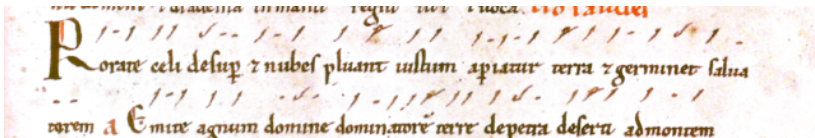 Rorate celi desup ⁊ nubes pluant iustum apiatur terra ⁊ germinet salua
torem a Emitte agnum domine dominatorē terre de petra deserti ad montem